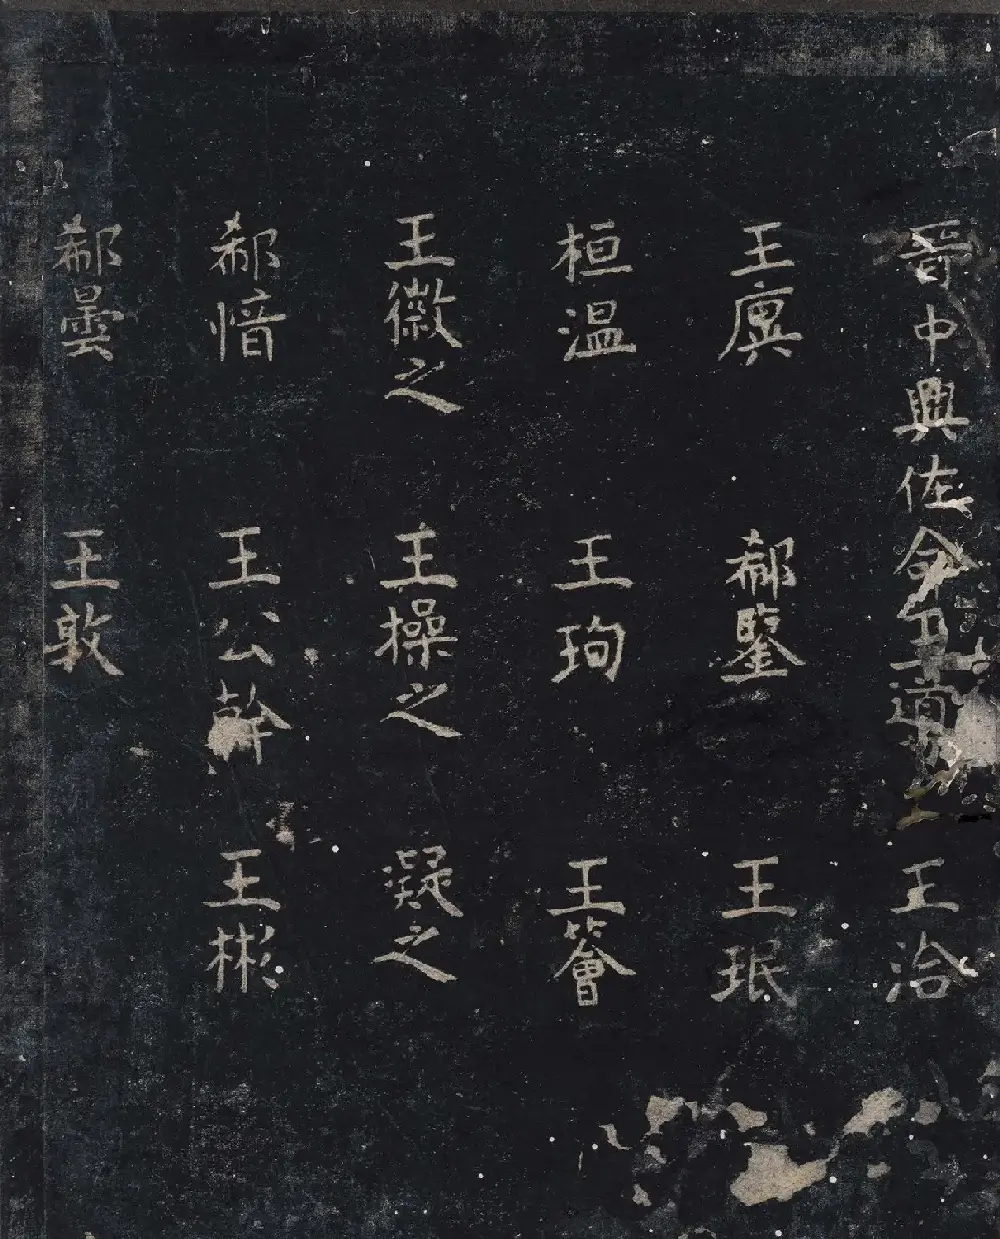 晉中興佐命王導 王洽
王廙 郗鑒 王珉
桓温 王珣 王薈
王徽之 王操之 凝之
郗愔 王公幹 王彬
郗曇 王敦